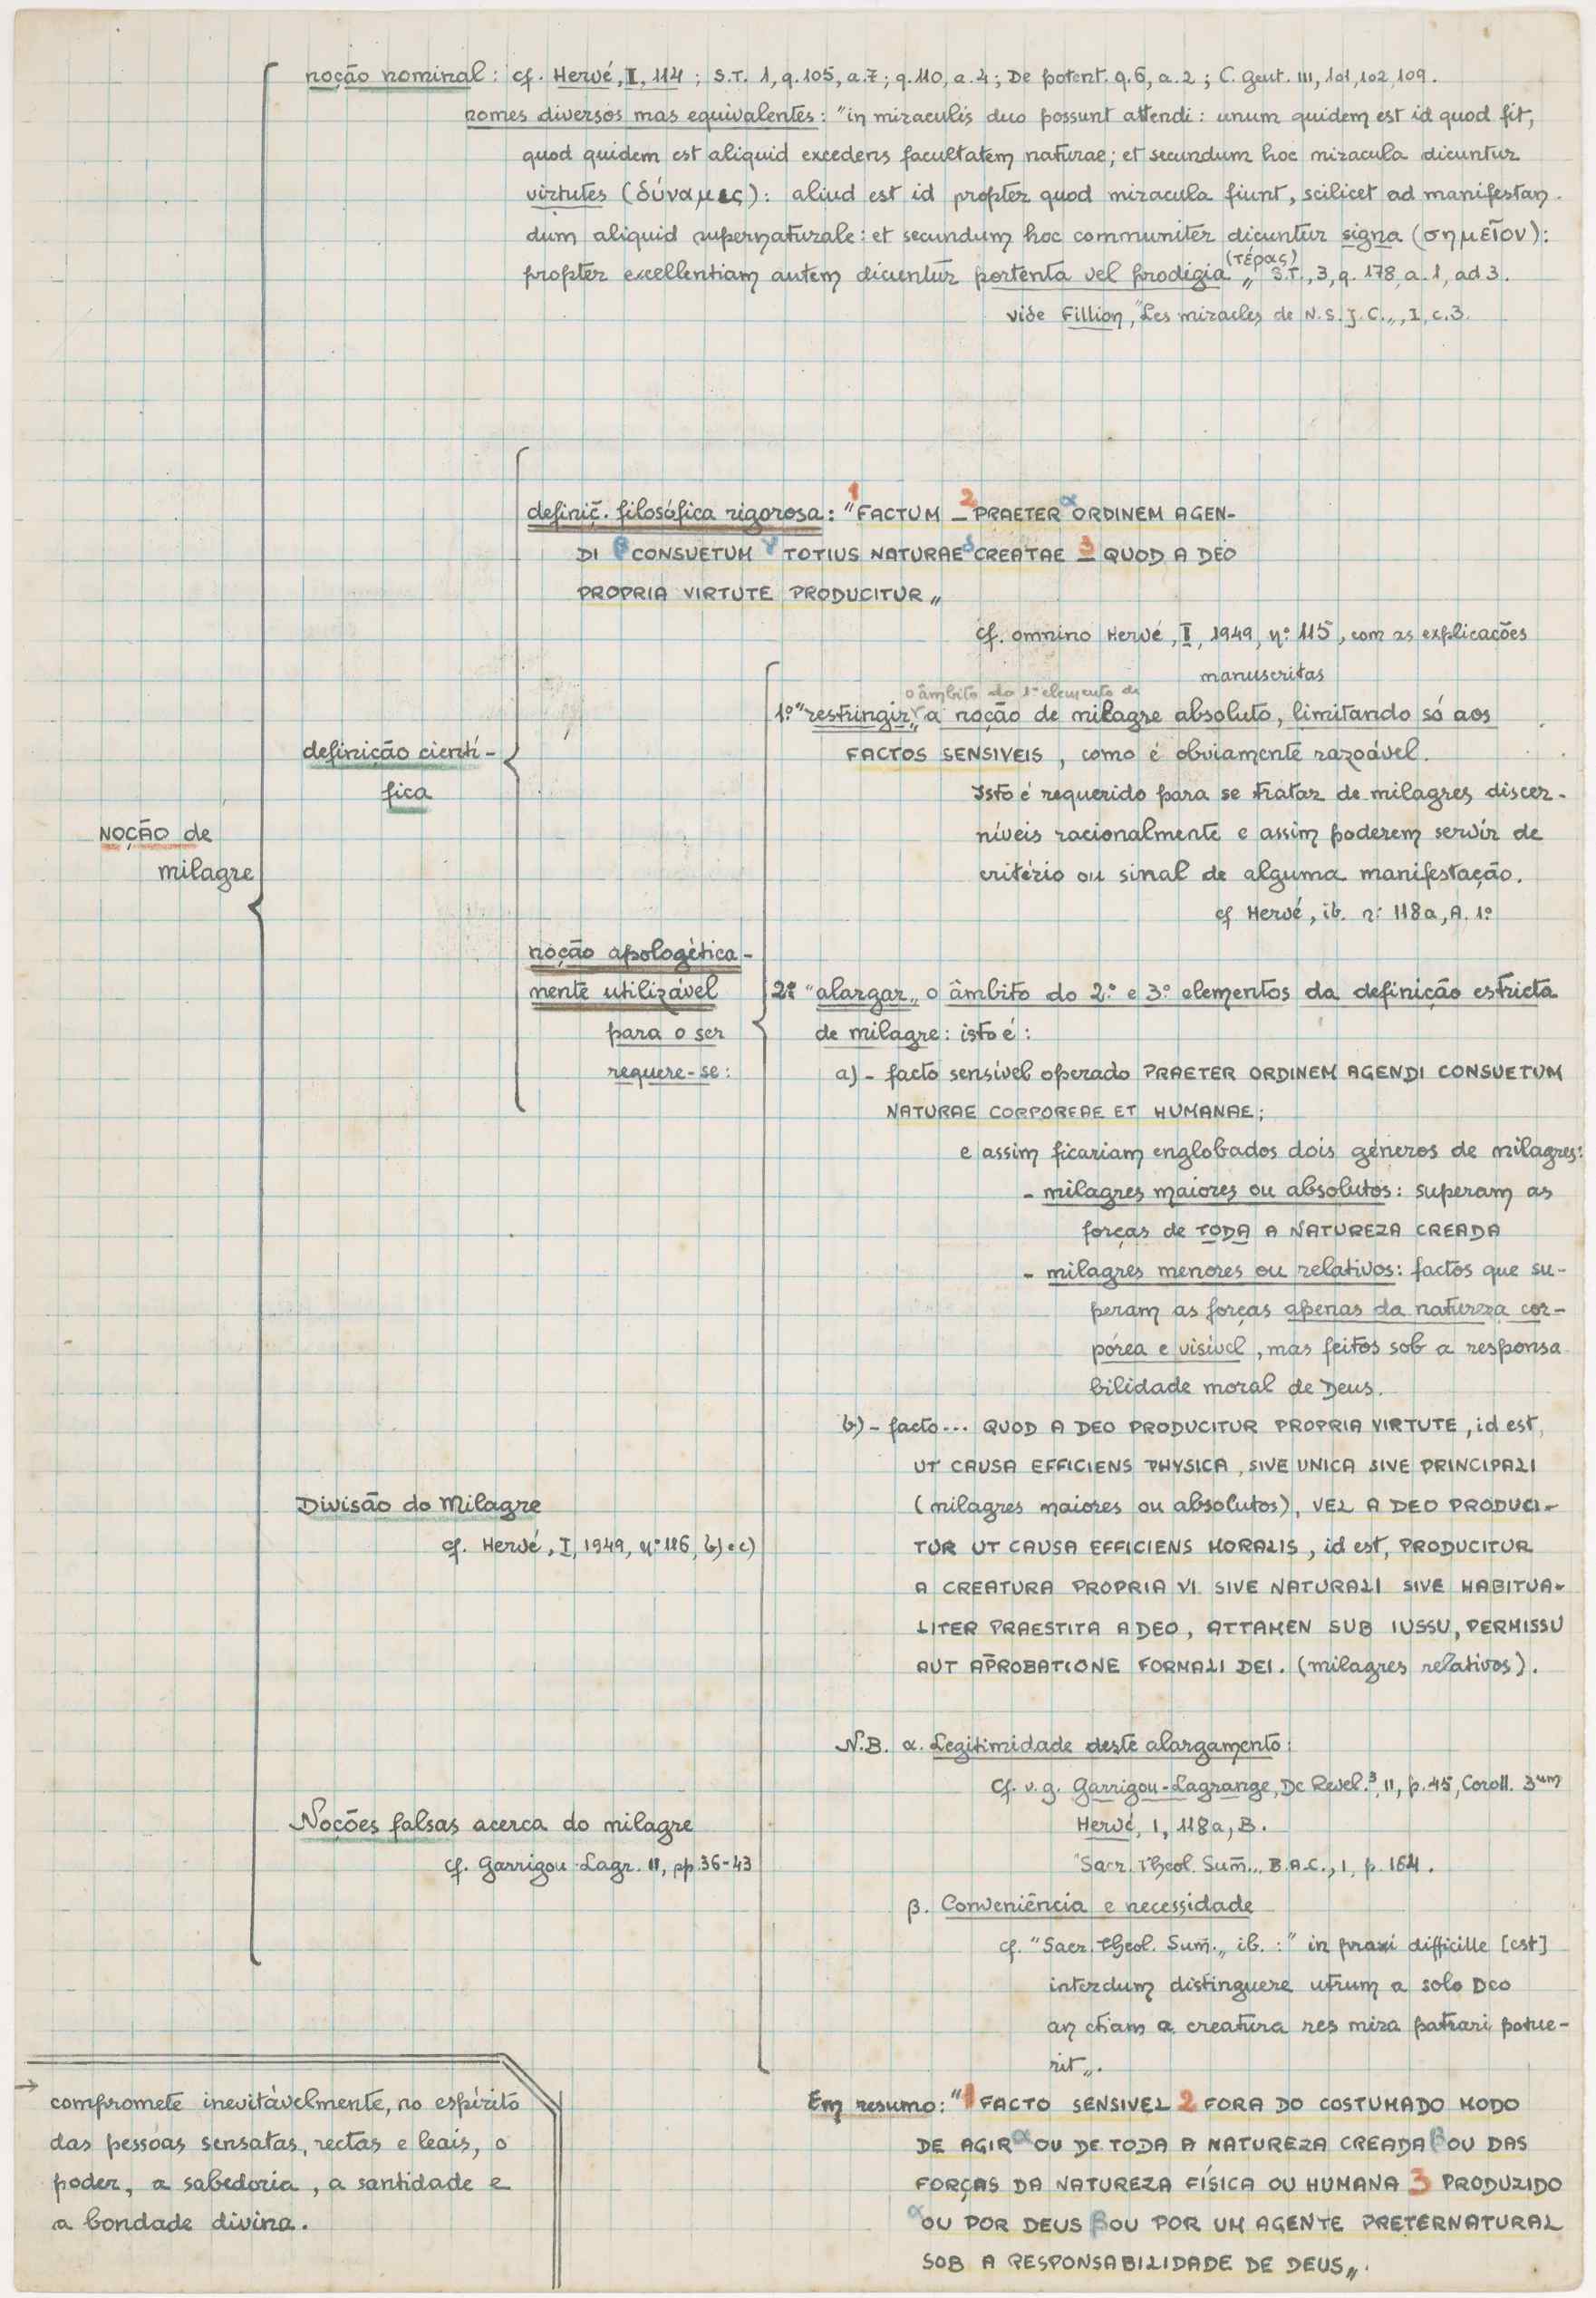 noção nominal: cf. Hervé, I, 114; S.T. 1, q.105, a.7; q.110, a.4; De potent. q.6, a.2; C. Gent. III, 101, 102, 109.
nomes diversos mas equivalentes: "in miraculis duo possunt attendi: unum quidem est id quod fit,
quod quidem est aliquid excedens facultatem naturae; et secundum hoc miracula dicuntur
virtutes (δύναμις): aliud est id propter quod miracula fiunt, scilicet ad manifestan
dum aliquid supernaturale: et secundum hoc communiter dicuntur signa (σημεῖον):
propter excellentiam autem dicuntur portenta vel prodigia (τέρας)„ S.T., 3, q. 178, a.1, ad 3.
vide Fillion, "Les miracles de N.S.J.C.„, I, c.3.
NOÇÃO de
milagre
definição cientí-
fica
definiç. filosófica rigorosa: "1 FACTUM _ 2 PRAETER α ORDINEM AGEN-
DI β CONSUETUM γ TOTIUS NATURAE δ CREATAE 3 QUOD A DEO
PROPRIA VIRTUTE PRODUCITUR„
cf. omnino Hervé, I, 1949, nº 115, com as explicações
manuscritas
noção apologética-
mente utilizável
para o ser
requere-se:
o âmbito do 1º elemento da
1º "restringir„ a noção de milagre absoluto, limitando só aos
FACTOS SENSIVEIS, como é obviamente razoável.
Isto é requerido para se tratar de milagres discer-
níveis racionalmente e assim poderem servir de
critério ou sinal de alguma manifestação.
cf Hervé, ib. nº 118a, A. 1º
2º "alargar„ o âmbito do 2.º e 3.º elementos da definição estricta
de milagre: isto é:
a) - facto sensível operado PRAETER ORDINEM AGENDI CONSUETUM
NATURAE CORPOREAE ET HUMANAE;
e assim ficariam englobados dois géneros de milagres:
- milagres maiores ou absolutos: superam as
forças de TODA A NATUREZA CREADA
- milagres menores ou relativos: factos que su-
peram as forças apenas da natureza cor-
pórea e visível, mas feitos sob a responsa
bilidade moral de Deus.
b) - facto... QUOD A DEO PRODUCITUR PROPRIA VIRTUTE, id est,
UT CAUSA EFFICIENS PHYSICA, SIVE UNICA SIVE PRINCIPALI
(milagres maiores ou absolutos), VEL A DEO PRODUCI-
TUR UT CAUSA EFFICIENS MORALIS, id est, PRODUCITUR
A CREATURA PROPRIA VI SIVE NATURALI SIVE HABITUA-
LITER PRAESTITA A DEO, ATTAMEN SUB IUSSU, PERMISSU
AUT AP̄ROBATIONE FORMALI DEI. (milagres relativos).
N.B. α. Legitimidade deste alargamento:
Cf. v.g. Garrigou-Lagrange, De Revel.³, II, p. 45, Coroll. 3um
Hervé, I, 118a, B.
"Sacr. Theol. Sum̄.„ B.A.C., I, p. 164.
β. Conveniência e necessidade
cf. "Sacr. Theol. Sum̄.„ ib.: "in praxi difficille [est]
interdum distinguere utrum a solo Deo
an etiam a creatura res mira patrari potue-
rit„.
Em resumo: "1 FACTO SENSIVEL 2 FORA DO COSTUMADO MODO
DE AGIR α OU DE TODA A NATUREZA CREADA β OU DAS
FORÇAS DA NATUREZA FÍSICA OU HUMANA 3 PRODUZIDO
α OU POR DEUS β OU POR UM AGENTE PRETERNATURAL
SOB A RESPONSABILIDADE DE DEUS„.
Divisão do Milagre
cf. Hervé, I, 1949, nº 116, b) e c)
Noções falsas acerca do milagre
cf. Garrigou-Lagr. II, pp. 36-43
→ compromete inevitàvelmente, no espírito
das pessoas sensatas, rectas e leais, o
poder, a sabedoria, a santidade e
a bondade divina.